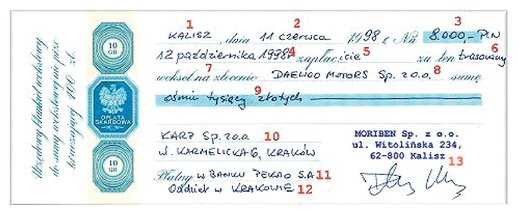 1 2 3
KALISZ, dnia 11 czerwca 1998 r. Na 8.000,- PLN
12 października 1998r 4 zapłacicie 5 za ten trasowany 6
7 weksel na zlecenie DAEWOO MOTORS Sp. z o.o. 8 sumę
9
ośmiu tysięcy złotych
KARP Sp. z o.o. 10
ul. KARMELICKA 6, KRAKÓW
Płatny w BANKU PEKAO S.A. 11
Oddział w KRAKOWIE 12
MORIBEN Sp. z o.o.
ul. Witolińska 234,
62-800 Kalisz
13
Urzędowy blankiet wekslowy
do sumy wekslowej nie prze-
kraczającej 100 zł.
10
GR
OPŁATA
SKARBOWA
10
GR